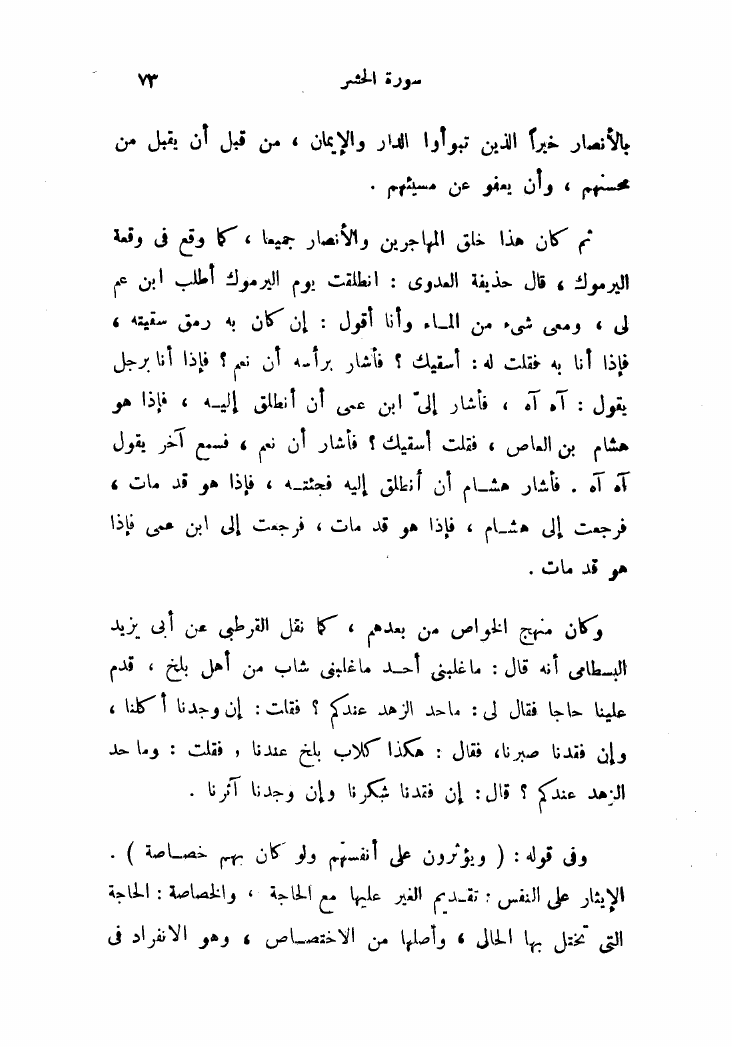 سورة الحشر ٧٣
بالأنصار خيراً الذين تبوأوا الدار والإيمان ، من قبل أن يقبل من
محسنهم ، وأن يعفو عن مسيئهم .
ثم كان هذا خلق المهاجرين والأنصار جميعا ، كما وقع فى وقعة
اليرموك ، قال حذيفة العدوى : انطلقت يوم اليرموك أطلب ابن عم
لى ، ومعى شىء من المـاء وأنا أقول : إن كان به رمق سقيته ،
فإذا أنا به فقلت له : أسقيك ؟ فأشار برأسه أن نعم ؟ فإذا أنا برجل
يقول : آه آه ، فأشار إلىّ ابن عمى أن أنطلق إليـه ، فإذا هو
هشام بن العاص ، فقلت أسقيك ؟ فأشار أن نعم ، فسمع آخر يقول
آه آه . فأشار هشـام أن أنطلق إليه فجئتـه ، فإذا هو قد مات ،
فرجعت إلى هشـام ، فإذا هو قد مات ، فرجعت إلى ابن عمى فإذا
هو قد مات .
وكان منهج الخواص من بعدهم ، كما نقل القرطبى عن أبى يزيد
البسطامى أنه قال : ماغلبنى أحـد ماغلبنى شاب من أهل بلخ ، قدم
علينا حاجا فقال لى : ماحد الزهد عندكم ؟ فقلت : إن وجدنا أكلنا ،
وإن فقدنا صبرنا، فقال : هكذا كلاب بلخ عندنا , فقلت : وما حد
الزهد عندكم ؟ قال : إن فقدنا شكرنا وإن وجدنا آثرنا .
وفى قوله : ( ويؤثرون على أنفسهم ولو كان بهم خصـاصة ) .
الإيثار على النفس : تقـديم الغير عليها مع الحاجة ، والخصاصة : الحاجة
التى تختل بها الحال ، وأصلها من الاختصـاص ، وهو الانفراد فى